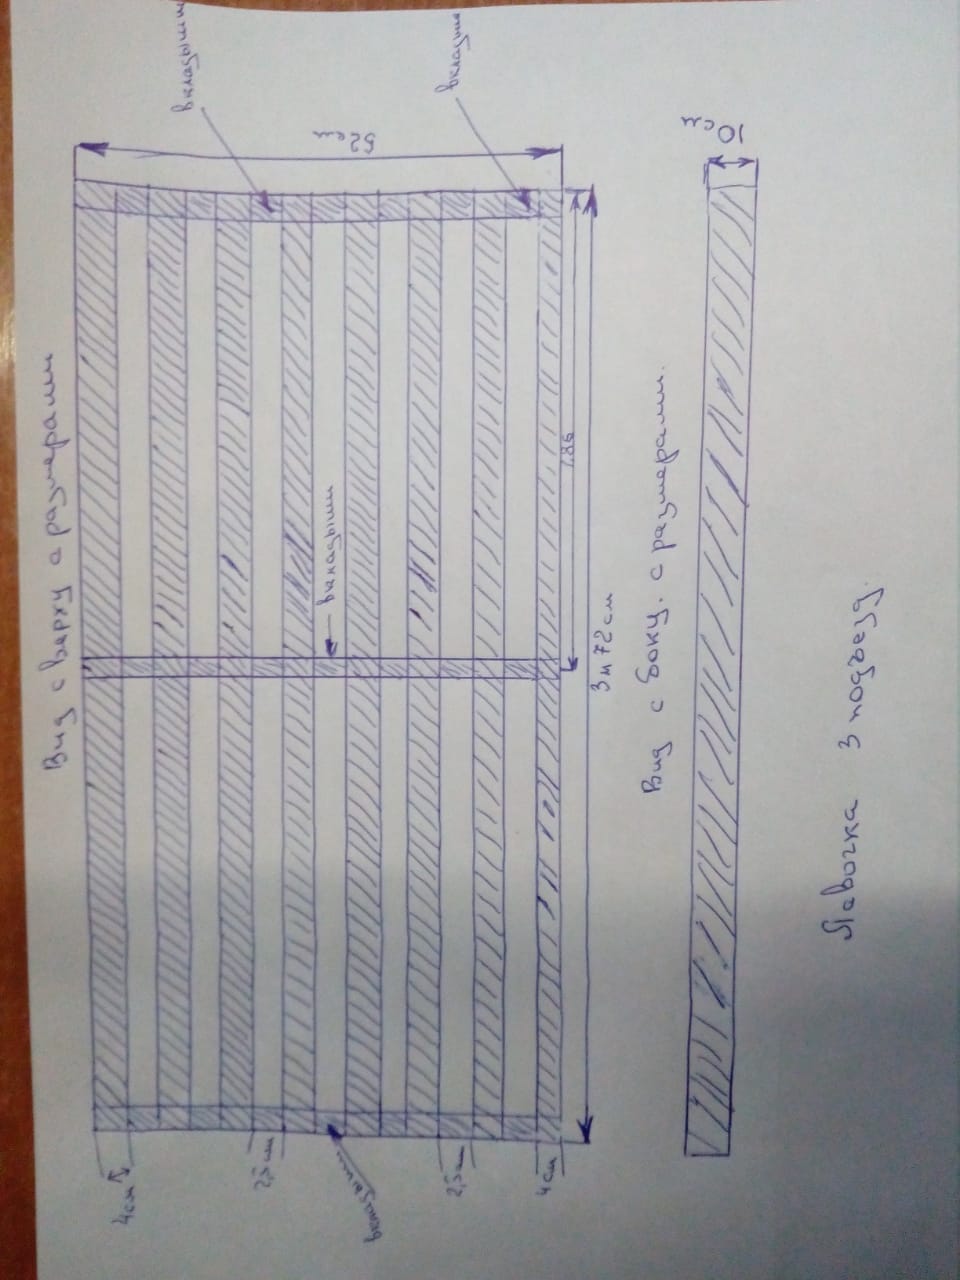 Вид с верху с размерами
вкладыши
вкладыш
52см
вкладыши
1.86
3м72см
4см
2,5см
вкладыш
2,5см
4см
Вид с боку. с размерами.
10см
Лавочка 3 подъезд.